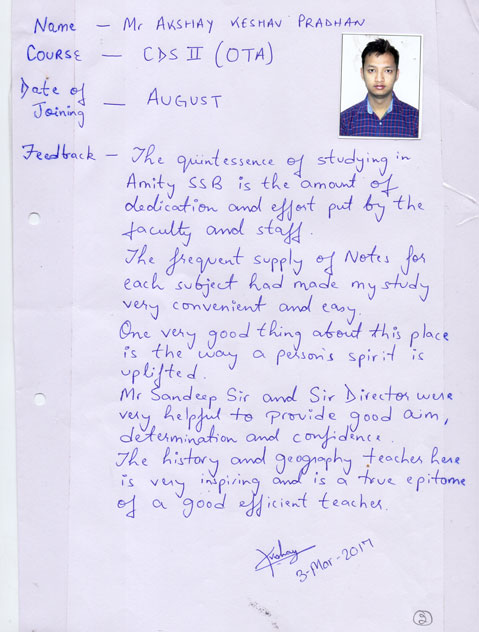 Name - Mr AKSHAY KESHAV PRADHAN
COURSE - CDS II (OTA)
Date of
Joining - AUGUST
Feedback - The quintessence of studying in
Amity SSB is the amount of
dedication and effort put by the
faculty and staff.
The frequent supply of Notes for
each subject had made my study
very convenient and easy.
One very good thing about this place
is the way a person's spirit is
uplifted.
Mr Sandeep Sir and Sir Director were
very helpful to provide good aim,
determination and confidence.
The history and geography teacher here
is very inspiring and is a true epitome
of a good efficient teacher.
Akshay
3-Mar-2017
3